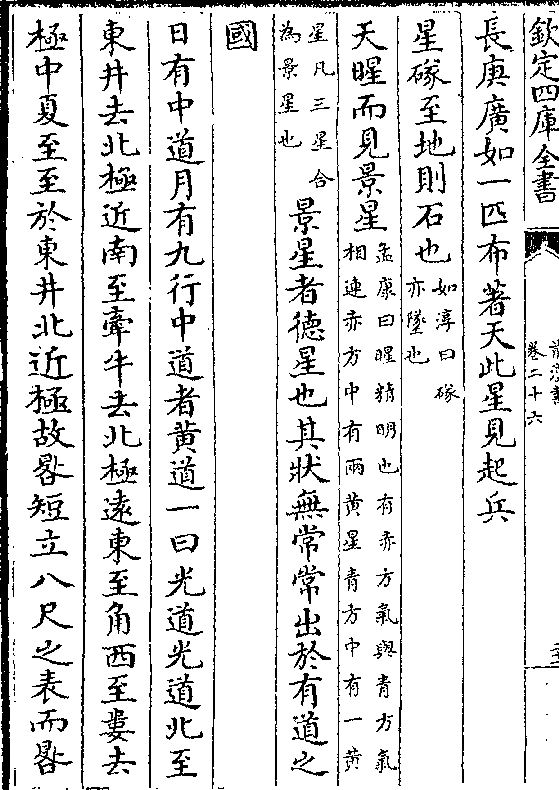 欽定四庫全書
卷二十六
長庚廣如一匹布著天此星見起兵
星磙至地則石也如淳曰磙亦墜也
天暒而見景星孟康曰暒精明也有赤方氣與青方氣相連赤方中有兩黄星青方中有一黄
星凡三星合為景星也景星者德星也其狀無常常出於有道之
國
日有中道月有九行中道者黄道一曰光道光道北至
東井去北極近南至牽牛去北極遠東至角西至婁去
極中夏至至於東井北近極故晷短立八尺之表而晷